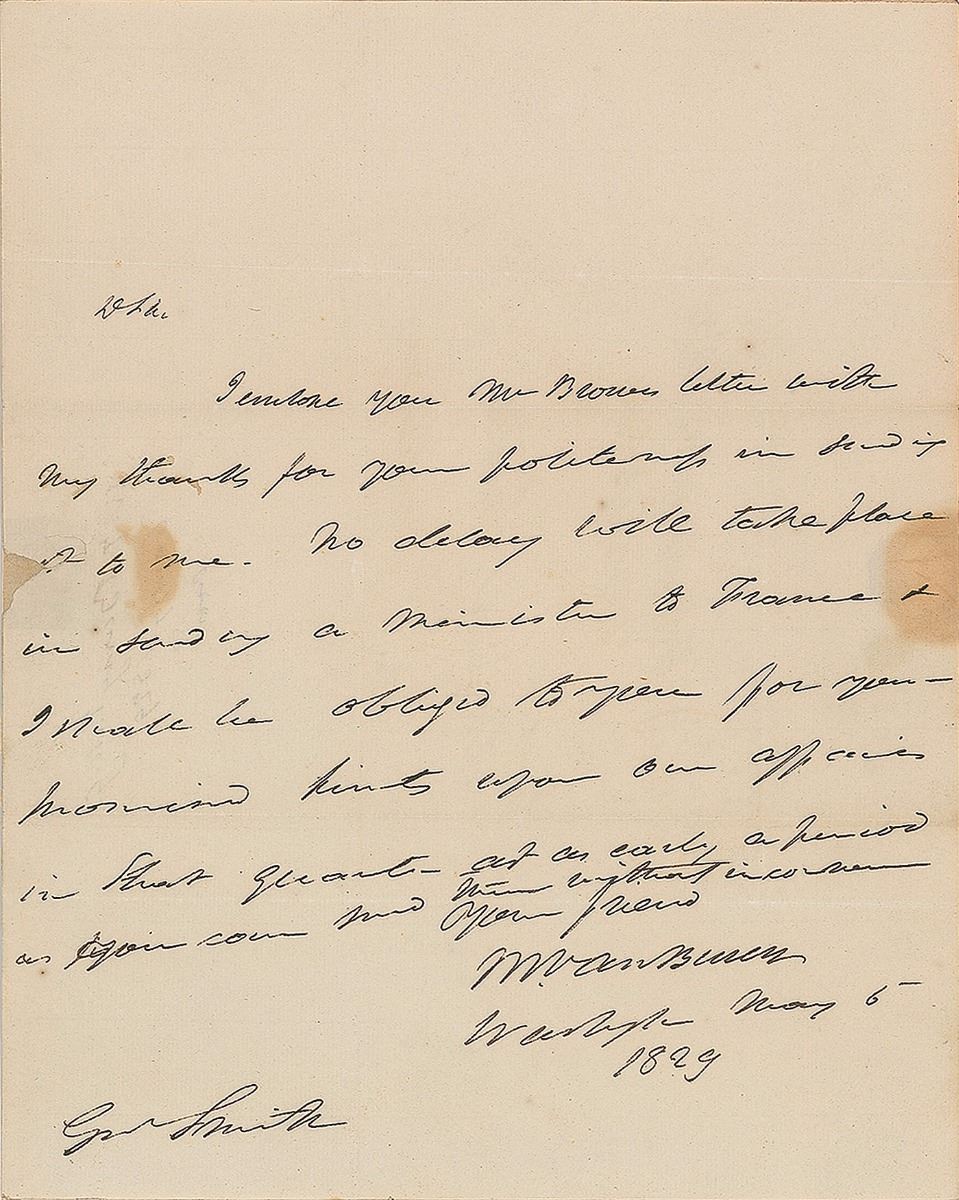 D Sir,
I enclose you Mr Browns letter with
my thanks for your politeness in sending
it to me. No delay will take place
in sending a minister to France &
I shall be obliged to you for your
promised hints upon our affairs
in that quarter at as early a period
as you can send them without inconvenience
Your friend
M. Van Buren
Washington May 5
1829
Genl Smith